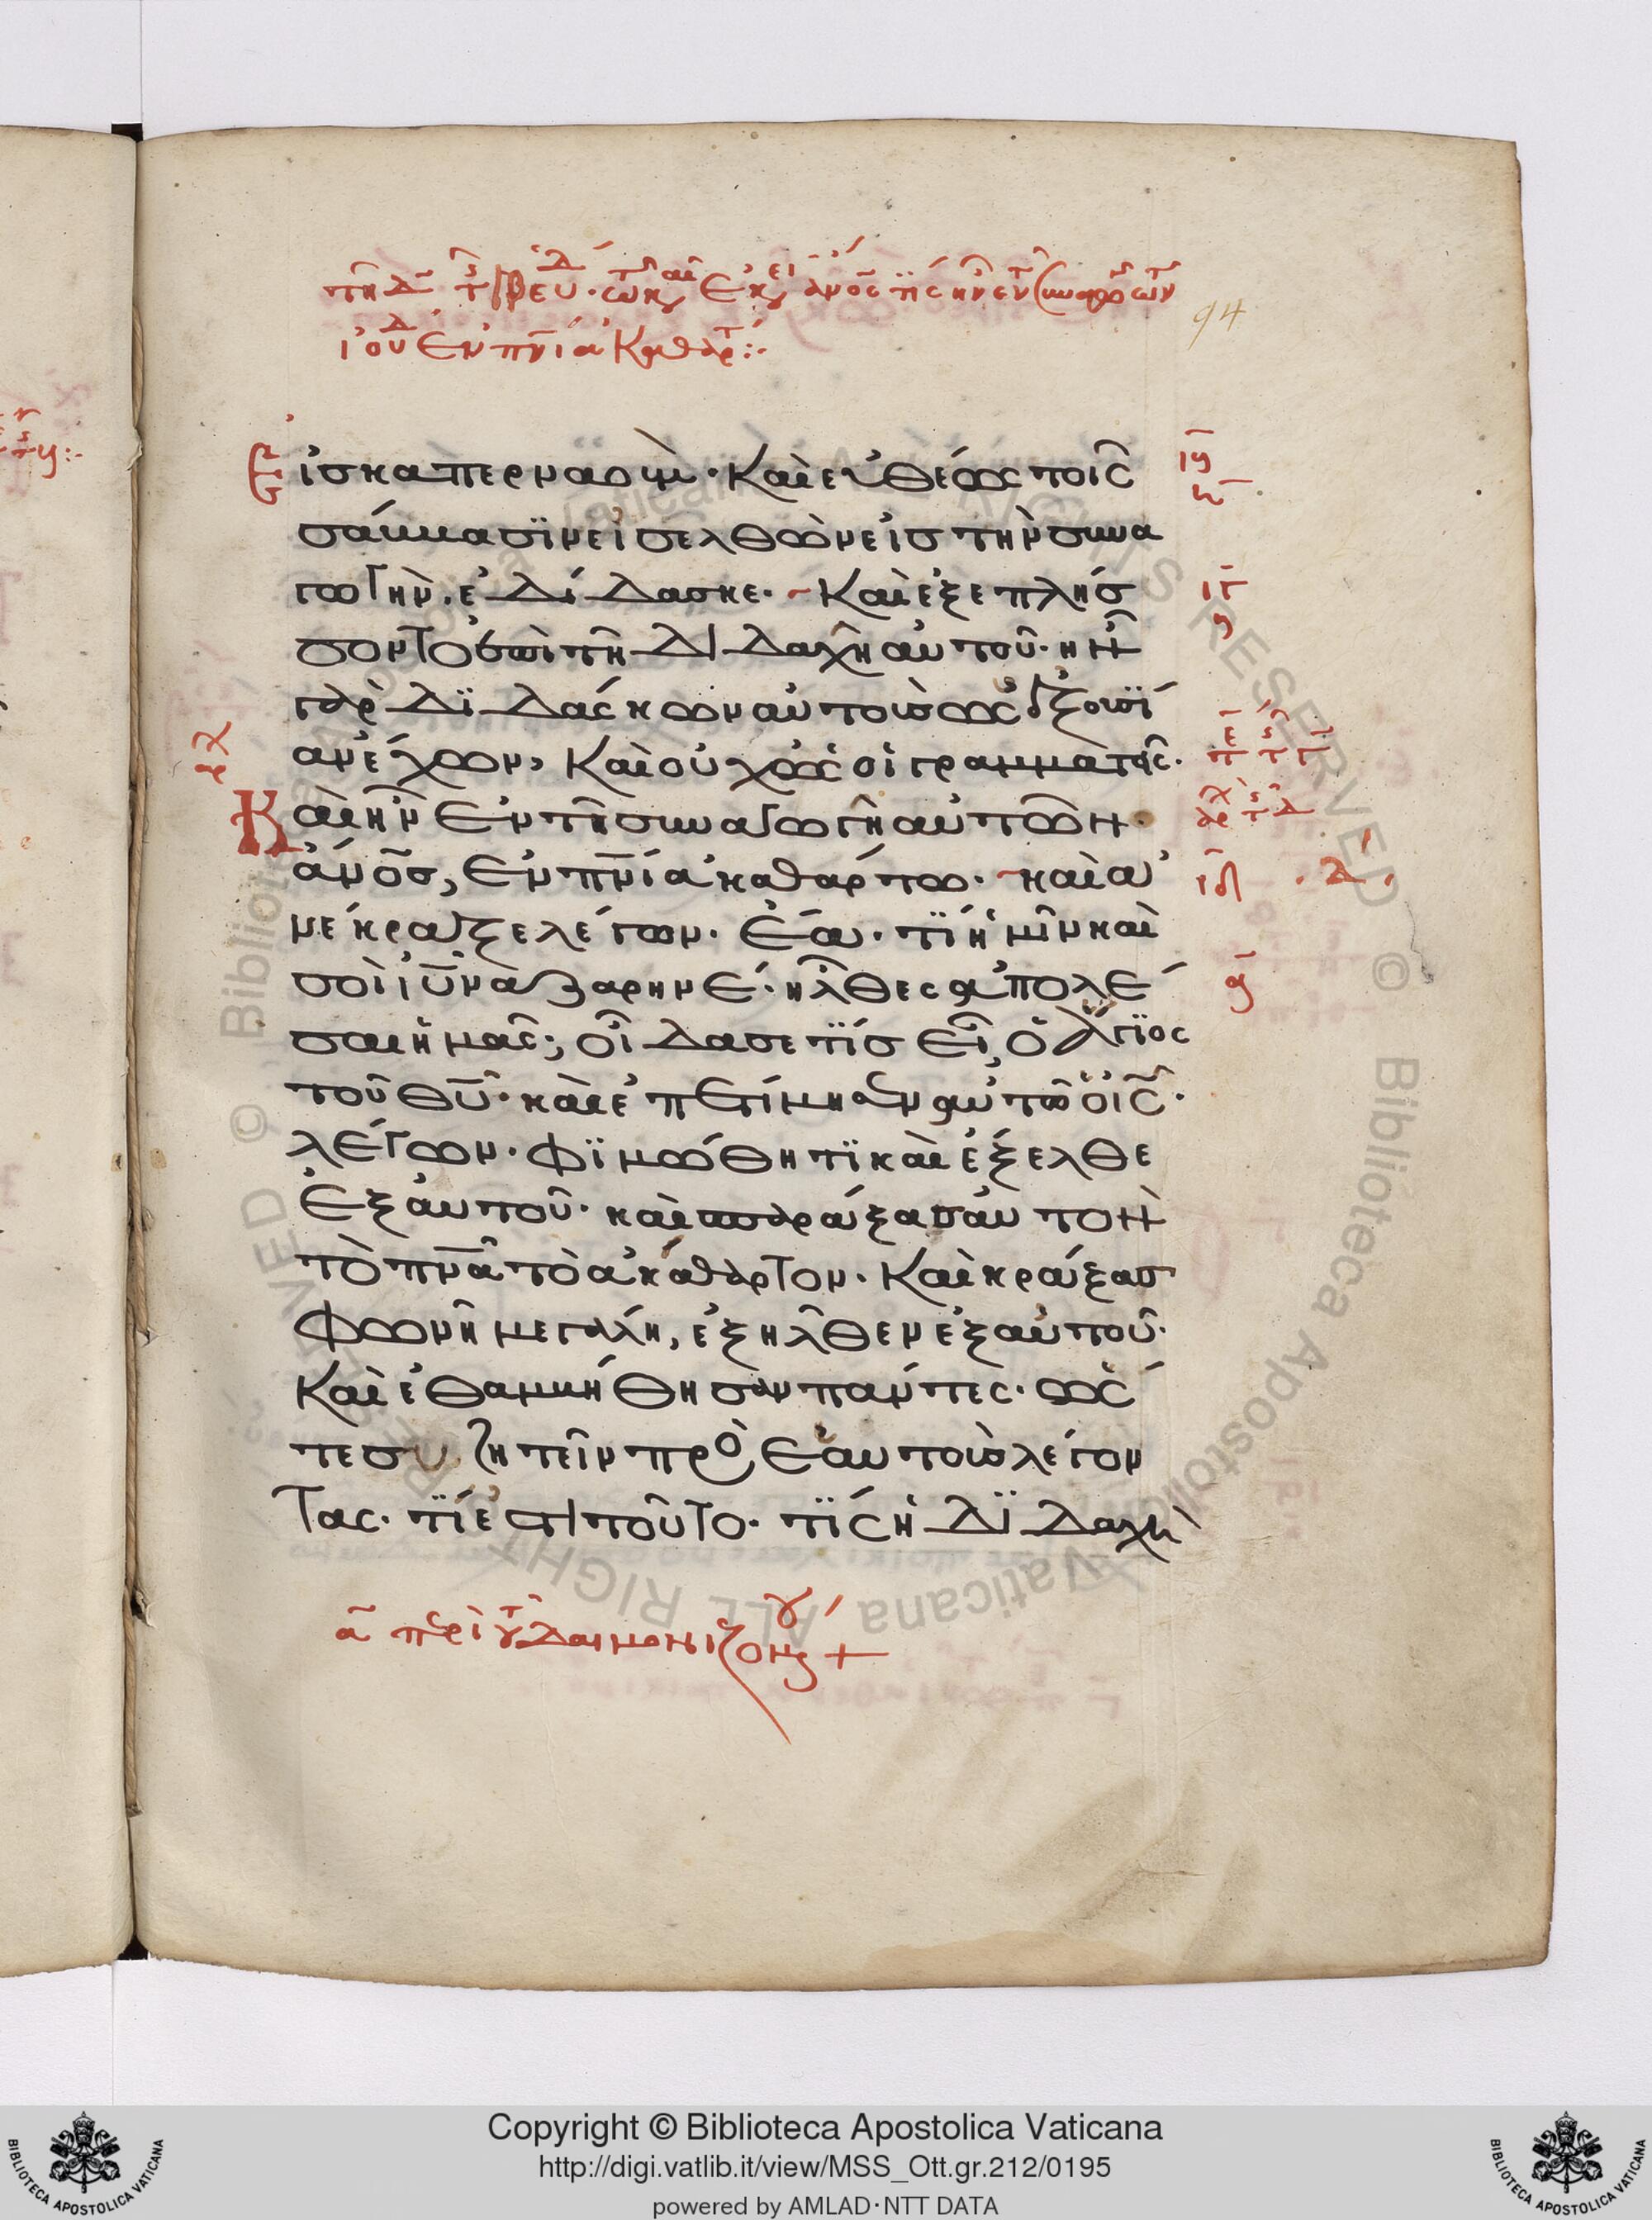 94
εἰσ καπερναοὺμ· Καὶ εὐθέως τοῖς
σάββασϊν εἰσελθὼν εἰσ τὴν συνα
γωγὴν, ἐδίδασκε· Καὶ ἐξεπλήσ
σοντο ἐπὶ τῆ διδαχῆ αὐτοῦ· ἦν
γὰρ διδάσκων αὐτοὺσ ὡς ἐξουσί
αν ἔχων, Καὶ οὐχ ὡς οἱ γραμματεῖς.
Καὶ ἦν ἐν τῆ συναγωγῆ αὐτῶν
ἄνος, ἐν πνι ἀκαθάρτω· καὶ ἀ
νέκραξε λέγων· ἔα· τί ἡμῖν καὶ
σοὶ ιυ ναζαρηνέ· ἦλθες ἀπολέ
σαι ἡμᾶς; οἶδα σε τίσ εἶ, ὁ ἅγιος
τοῦ θυ· καὶ ἐπετίμησεν αὐτῶ ὁ ις.
λέγων· φϊμώθητϊ καὶ ἔξελθε
ἐξ αὐτοῦ· καὶ σπαράξαν αὐτὸν
τὸ πνα τὸ ἀκάθαρτον· Καὶ κράξασ
φωνῆ μεγάλη, ἐξῆλθεν ἐξ αὐτοῦ·
Καὶ ἐθαμβήθησαν πάντες· ὥς
τε συζητεῖν πρὸς ἑαυτοὺσ λέγον
τας· τί ἐστι τοῦτο· τίς ἡ διδαχὴ
α περὶ τοῦ δαιμονιζομένου +
Copyright © Biblioteca Apostolica Vaticana
http://digi.vatlib.it/view/MSS_Ott.gr.212/0195
powered by AMLAD·NTT DATA
BIBLIOTECA APOSTOLICA VATICANA
BIBLIOTECA APOSTOLICA VATICANA